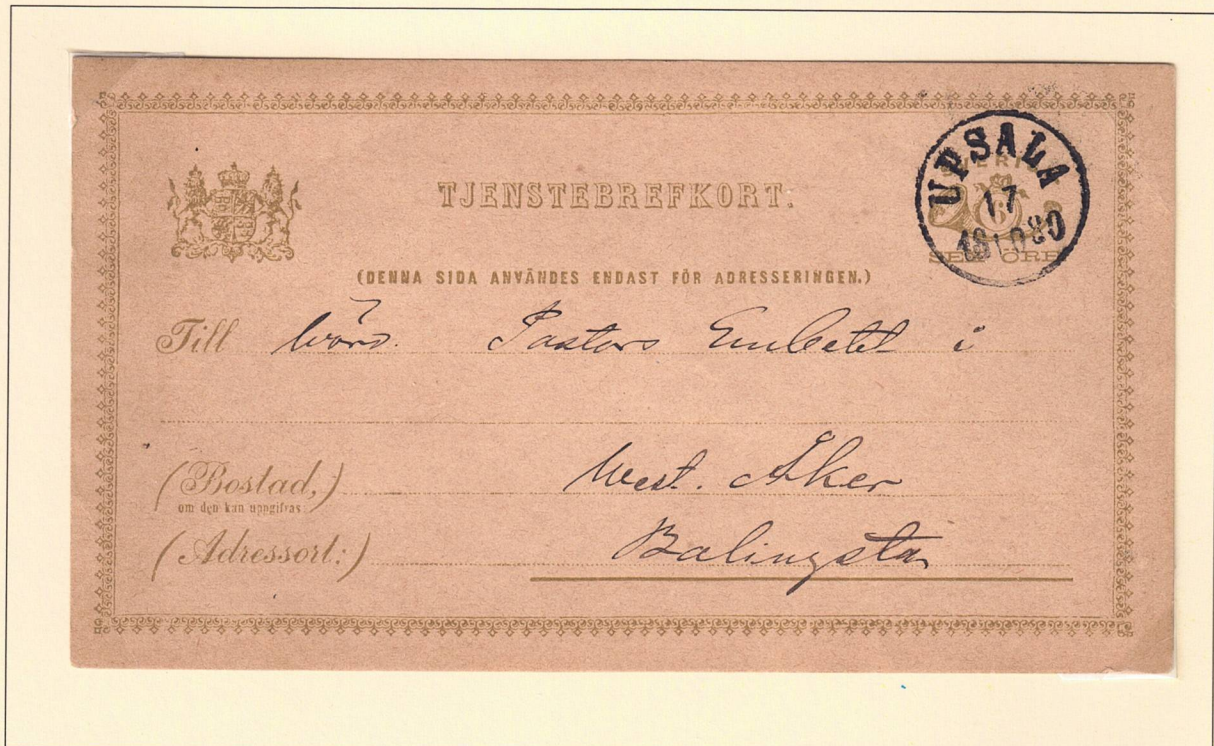 TJENSTEBREFKORT.
UPSALA
17
1880
SVERIGE
6
SEX ÖRE
(DENNA SIDA ANVÄNDES ENDAST FÖR ADRESSERINGEN.)
Till Pastors Embetet i
West. Åker
(Bostad,)
om den kan uppgifvas
(Adressort:) Balingsta